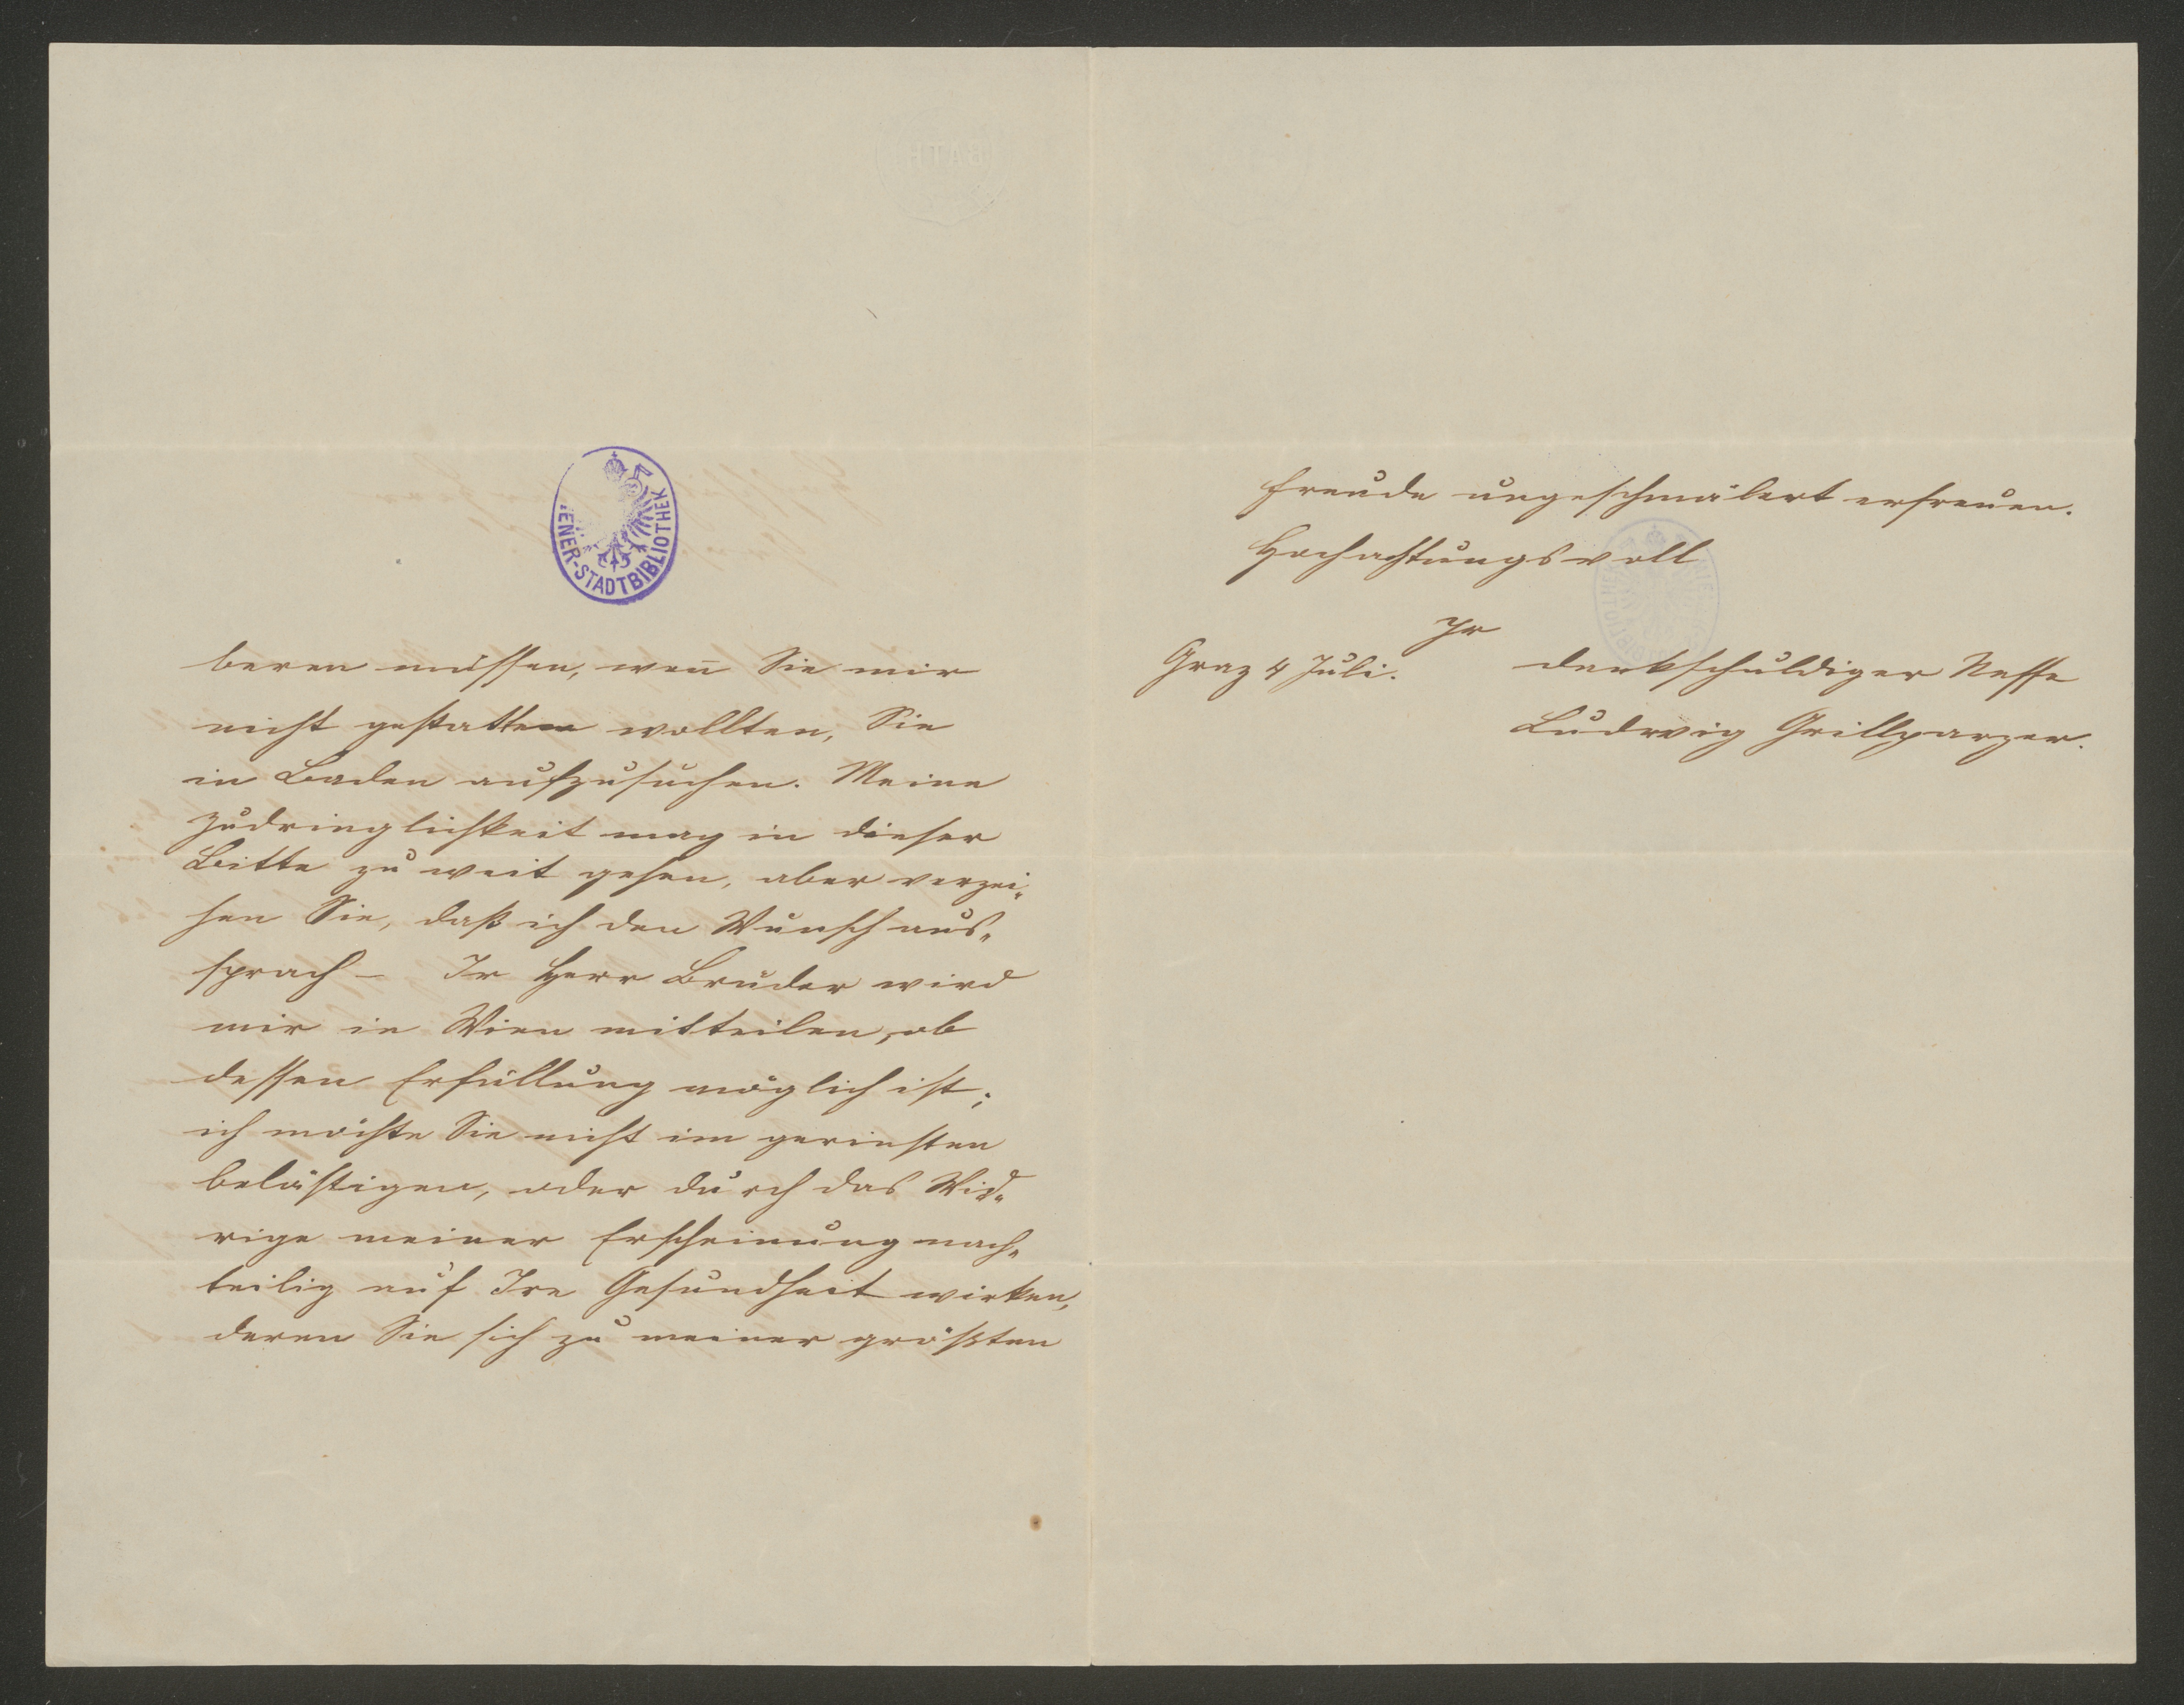 WIENER-STADTBIBLIOTHEK
beren müssen, weñ Sie mir
nicht gestatten wollten, Sie
in Baden aufzusuchen. Meine
Zudringlichkeit mag in dieser
Bitte zu weit gehen, aber verzei-
hen Sie, daß ich den Wunsch aus-
sprach – Ir Herr Bruder wird
mir in Wien mitteilen, ob
dessen Erfüllung möglich ist;
ich möchte Sie nicht im gerinsten
belästigen, oder durch das Wid-
rige meiner Erscheinung nach-
teilig auf Ire Gesundheit wirken,
deren Sie sich zu meiner größten
Freude ungeschmälert erfreuen.
Hochachtungsvoll
Ir
Graz 4 Juli. dankschuldiger Neffe
Ludwig Grillparzer.
BATH